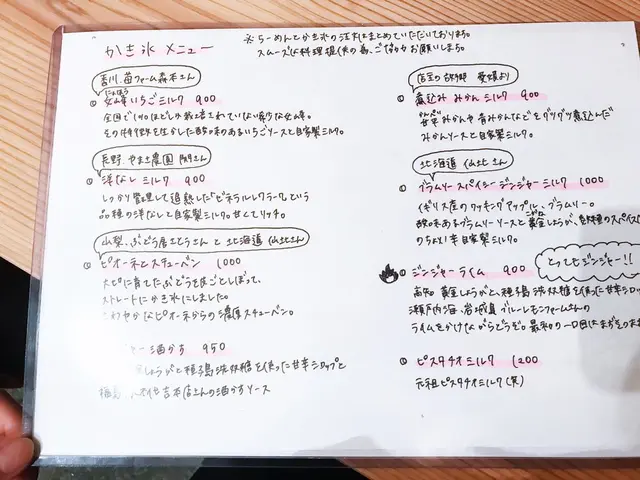 かき氷 メニュー
※らーめんとかき氷の注文はまとめていただいております。
スムーズな料理提供の為、ご協力お願いします。
香川、苗ファーム森本さん
女峰いちごミルク 900
にょほう
全国で1%ほどしか栽培されていない希少な女峰。
その特徴を生かした酸味のあるいちごソースと自家製ミルク。
長野、やまさ農園
洋なしミルク 900
しっかり管理して追熟した「ピネラルレクラーク」という
品種の洋なしと自家製ミルク。甘くてリッチ。
山梨、ぶどう屋さとうさんと北海道 仙北さん
ピオーネとスチューベン 1000
大切に育てたぶどうを丸ごとしぼって、
ストレートにかき氷にしました。
さわやかなピオーネからの濃厚スチューベン。
酒かす 950
しょうがと種子島洗双糖を使った甘辛シロップと
さんの酒かすソース
店主の故郷 愛媛より
煮込みみかんミルク 900
甘平みかんや青みかんなどをグツグツ煮込んだ
かんぺい
みかんソースと自家製ミルク。
北海道 仙北さん
ブラムリースパイシージンジャーミルク 1000
イギリス産のクッキングアップル、ブラムリー。
酸味あるブラムリーソースと黄金しょうが、各種のスパイス
こがね
のちょい辛自家製ミルク。
とってもジンジャー!!
ジンジャーライム 900
高知 黄金しょうがと、種子島洗双糖を使った甘辛シロップ
瀬戸内海、岩城島ブルーレモンファームさんの
ライムをかけながらどうぞ。最初の一口はまずそのまま
ピスタチオミルク 1200
元祖ピスタチオミルク(笑)